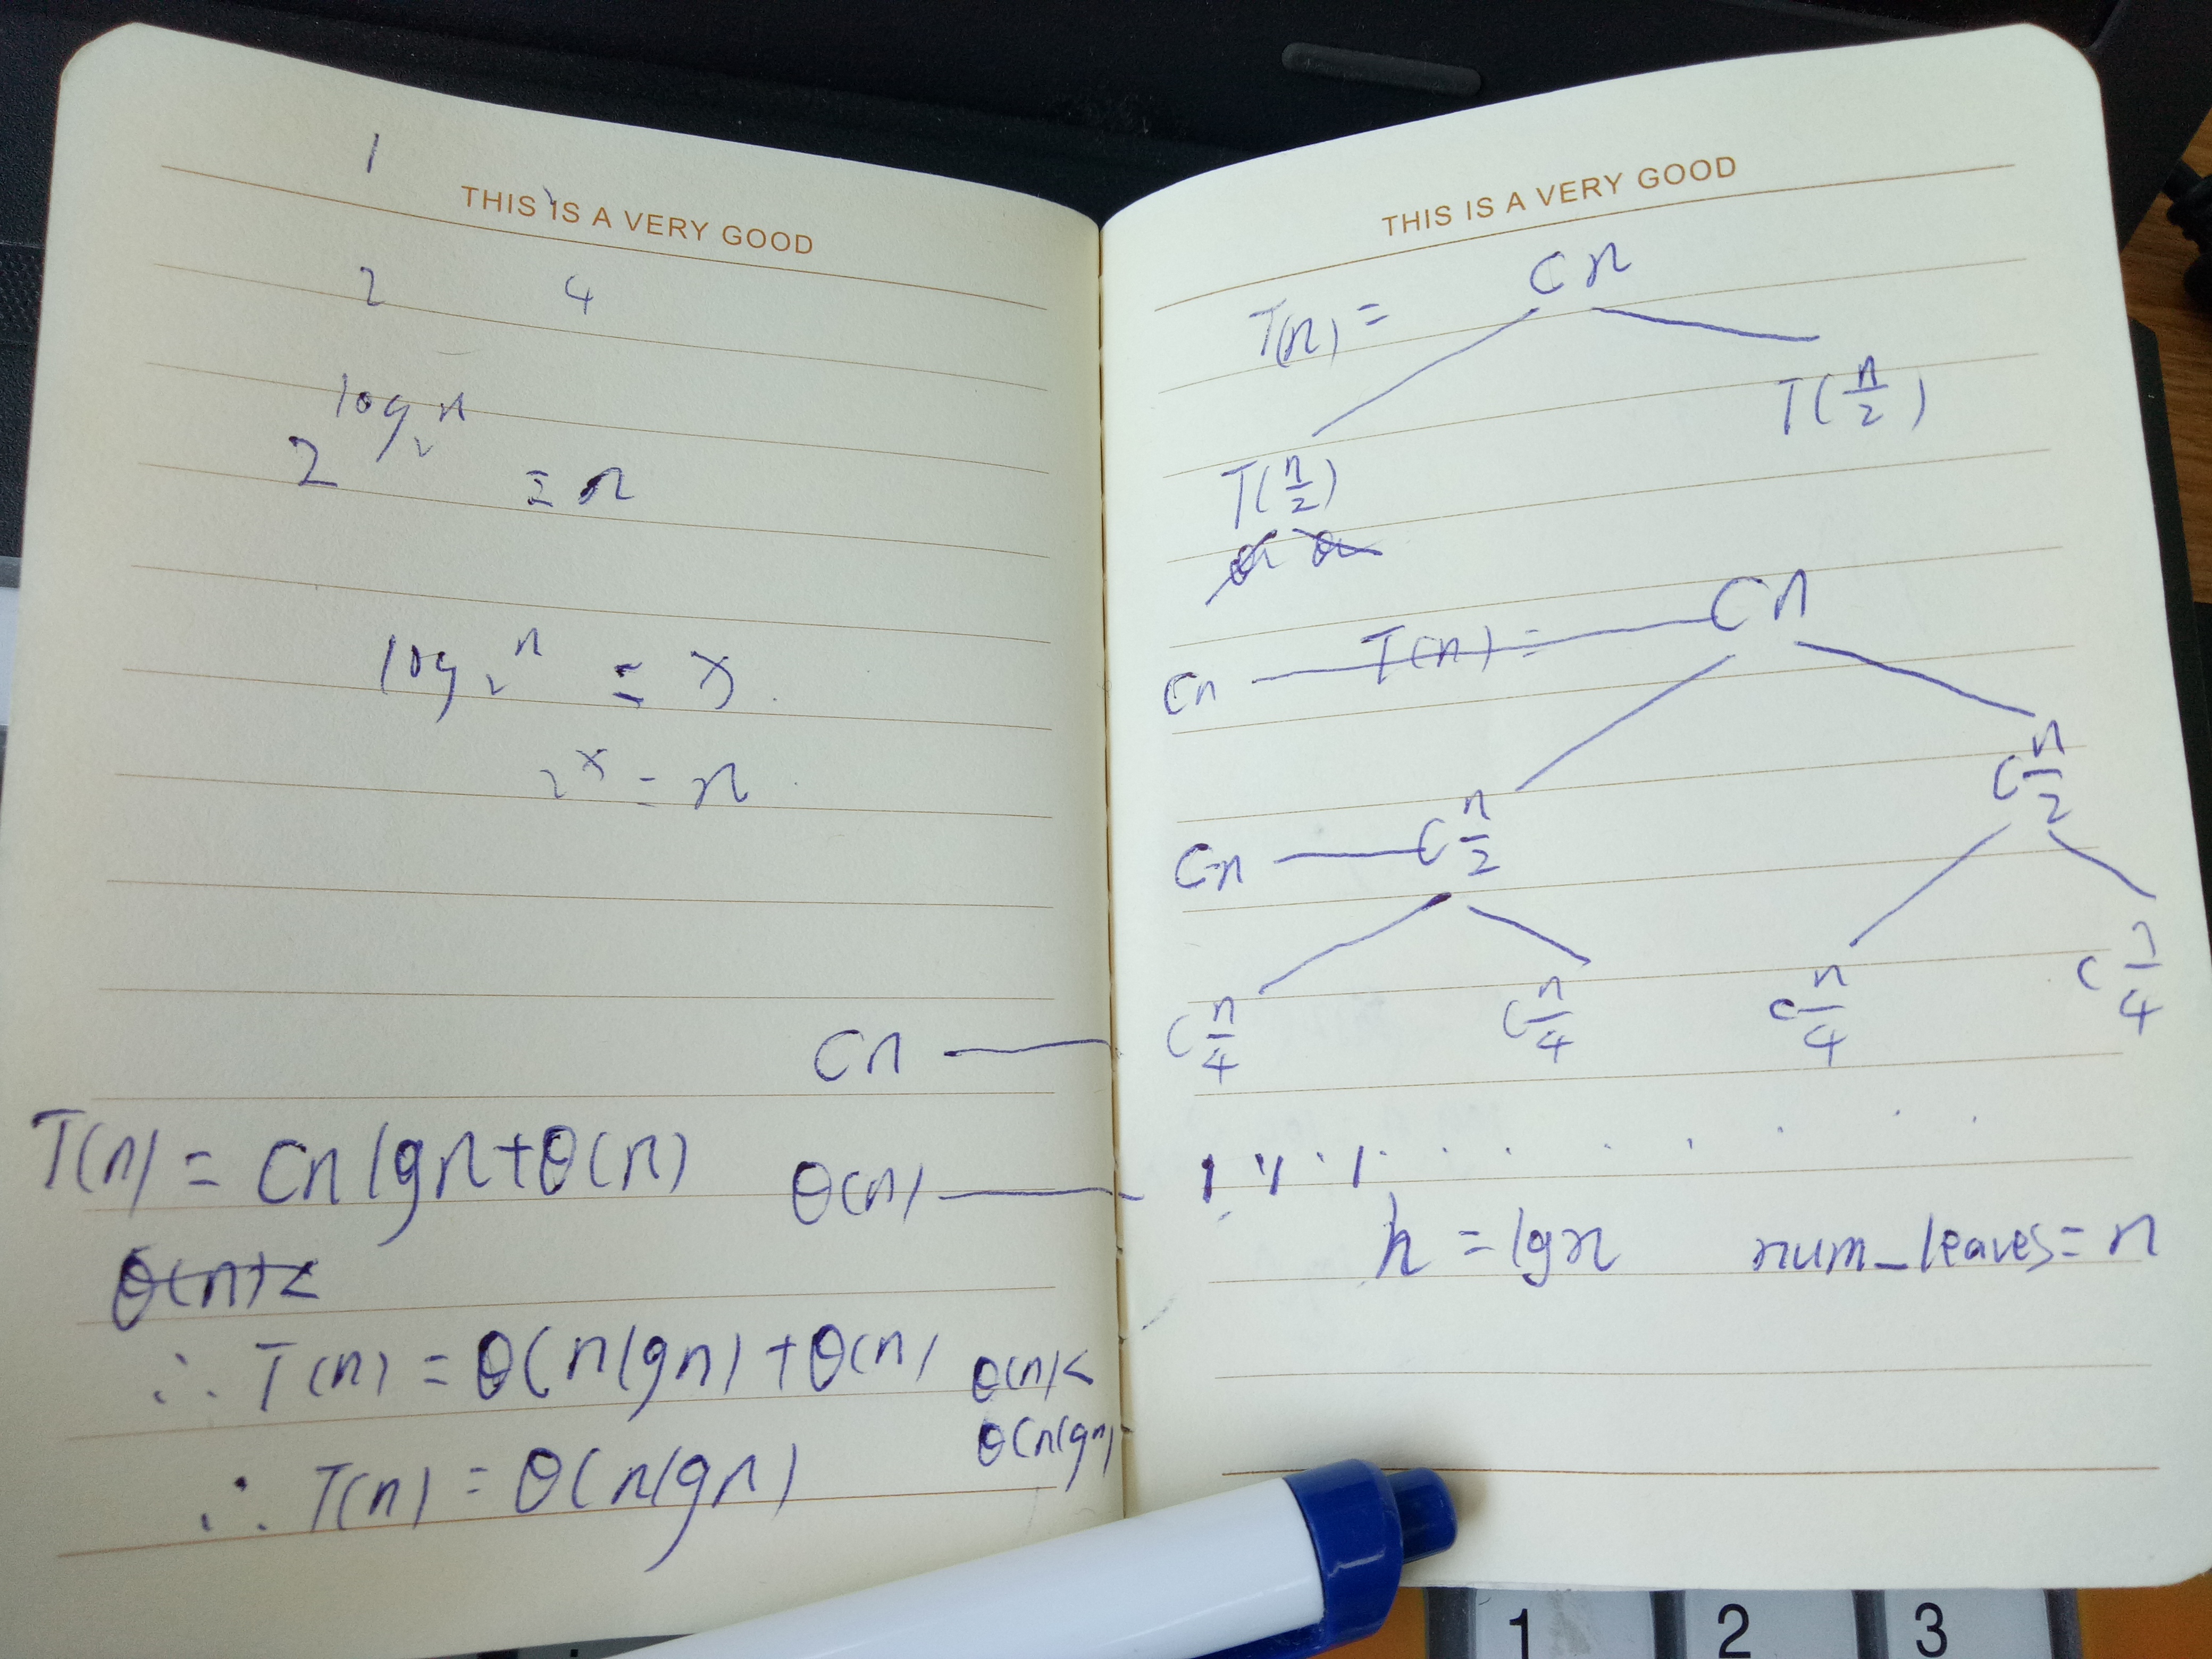 1
THIS IS A VERY GOOD
2 4
2^{log_2 n} = n
log_2 n = x
2^x = n
Cn
T(n) = Cn lgn + θ(n) θ(n)
θ(n) <
∴ T(n) = θ(n lgn) + θ(n) θ(n) <
θ(n lgn)
∴ T(n) = θ(n lgn)
THIS IS A VERY GOOD
T(n) = Cn
T(n/2)
T(n/2)
Cn T(n) = Cn
C n/2
Cn C n/2
C n/4 C n/4 C n/4 C n/4
h = lgn num_leaves = n
1 2 3